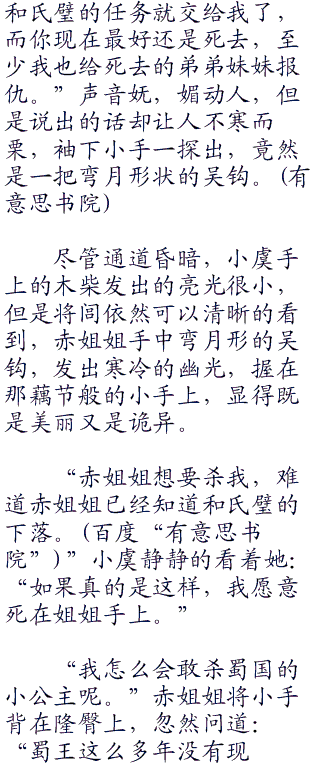 和氏璧的任务就交给我了，
而你现在最好还是死去，至
少我也给死去的弟弟妹妹报
仇。”声音妩，媚动人，但
是说出的话却让人不寒而
栗，袖下小手一探出，竟然
是一把弯月形状的吴钩。(有
意思书院)
尽管通道昏暗，小虞手
上的木柴发出的亮光很小，
但是将闾依然可以清晰的看
到，赤姐姐手中弯月形的吴
钩，发出寒冷的幽光，握在
那藕节般的小手上，显得既
是美丽又是诡异。
“赤姐姐想要杀我，难
道赤姐姐已经知道和氏璧的
下落。(百度“有意思书
院”)”小虞静静的看着她：
“如果真的是这样，我愿意
死在姐姐手上。”
“我怎么会敢杀蜀国的
小公主呢。”赤姐姐将小手
背在隆臀上，忽然问道：
“蜀王这么多年没有现